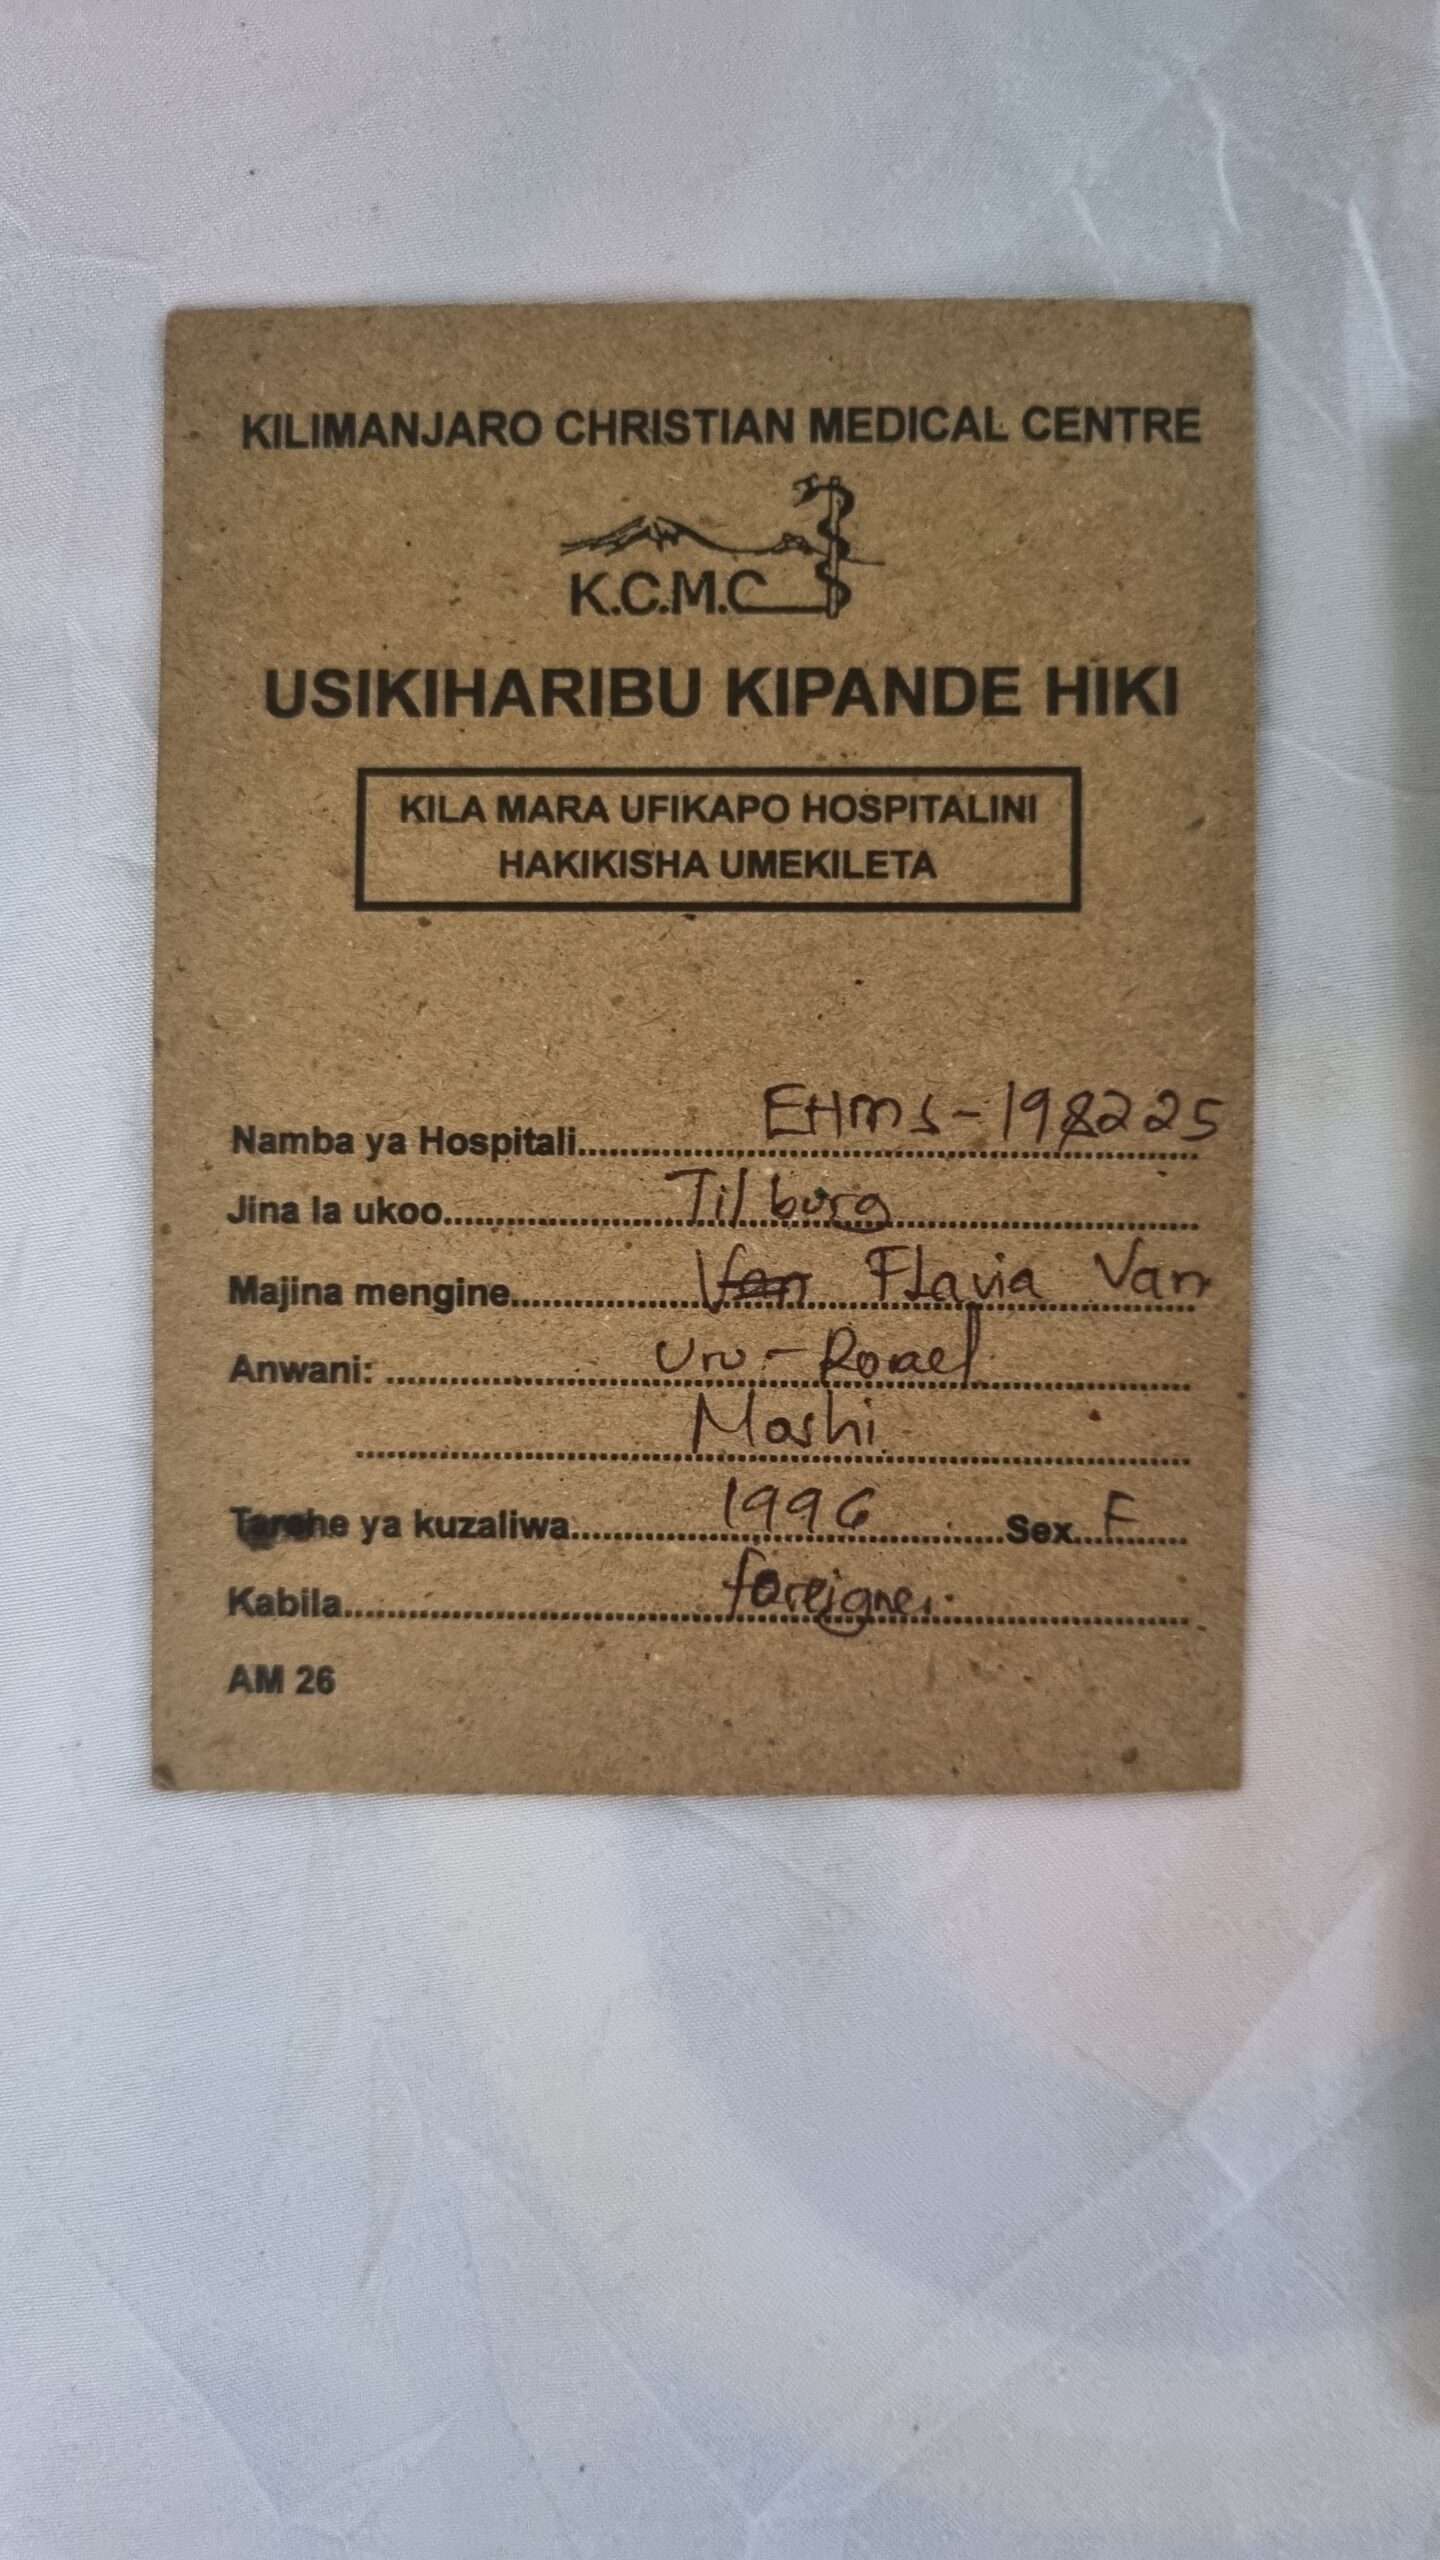 KILIMANJARO CHRISTIAN MEDICAL CENTRE
K.C.M.C
USIKIHARIBU KIPANDE HIKI
KILA MARA UFIKAPO HOSPITALINI
HAKIKISHA UMEKILETA
Namba ya Hospitali EHMS-198225
Jina la ukoo Tilburg
Majina mengine Flavia Van
Anwani: Uru-
Moshi
Tarehe ya kuzaliwa 1996 Sex F
Kabila foreigner
AM 26